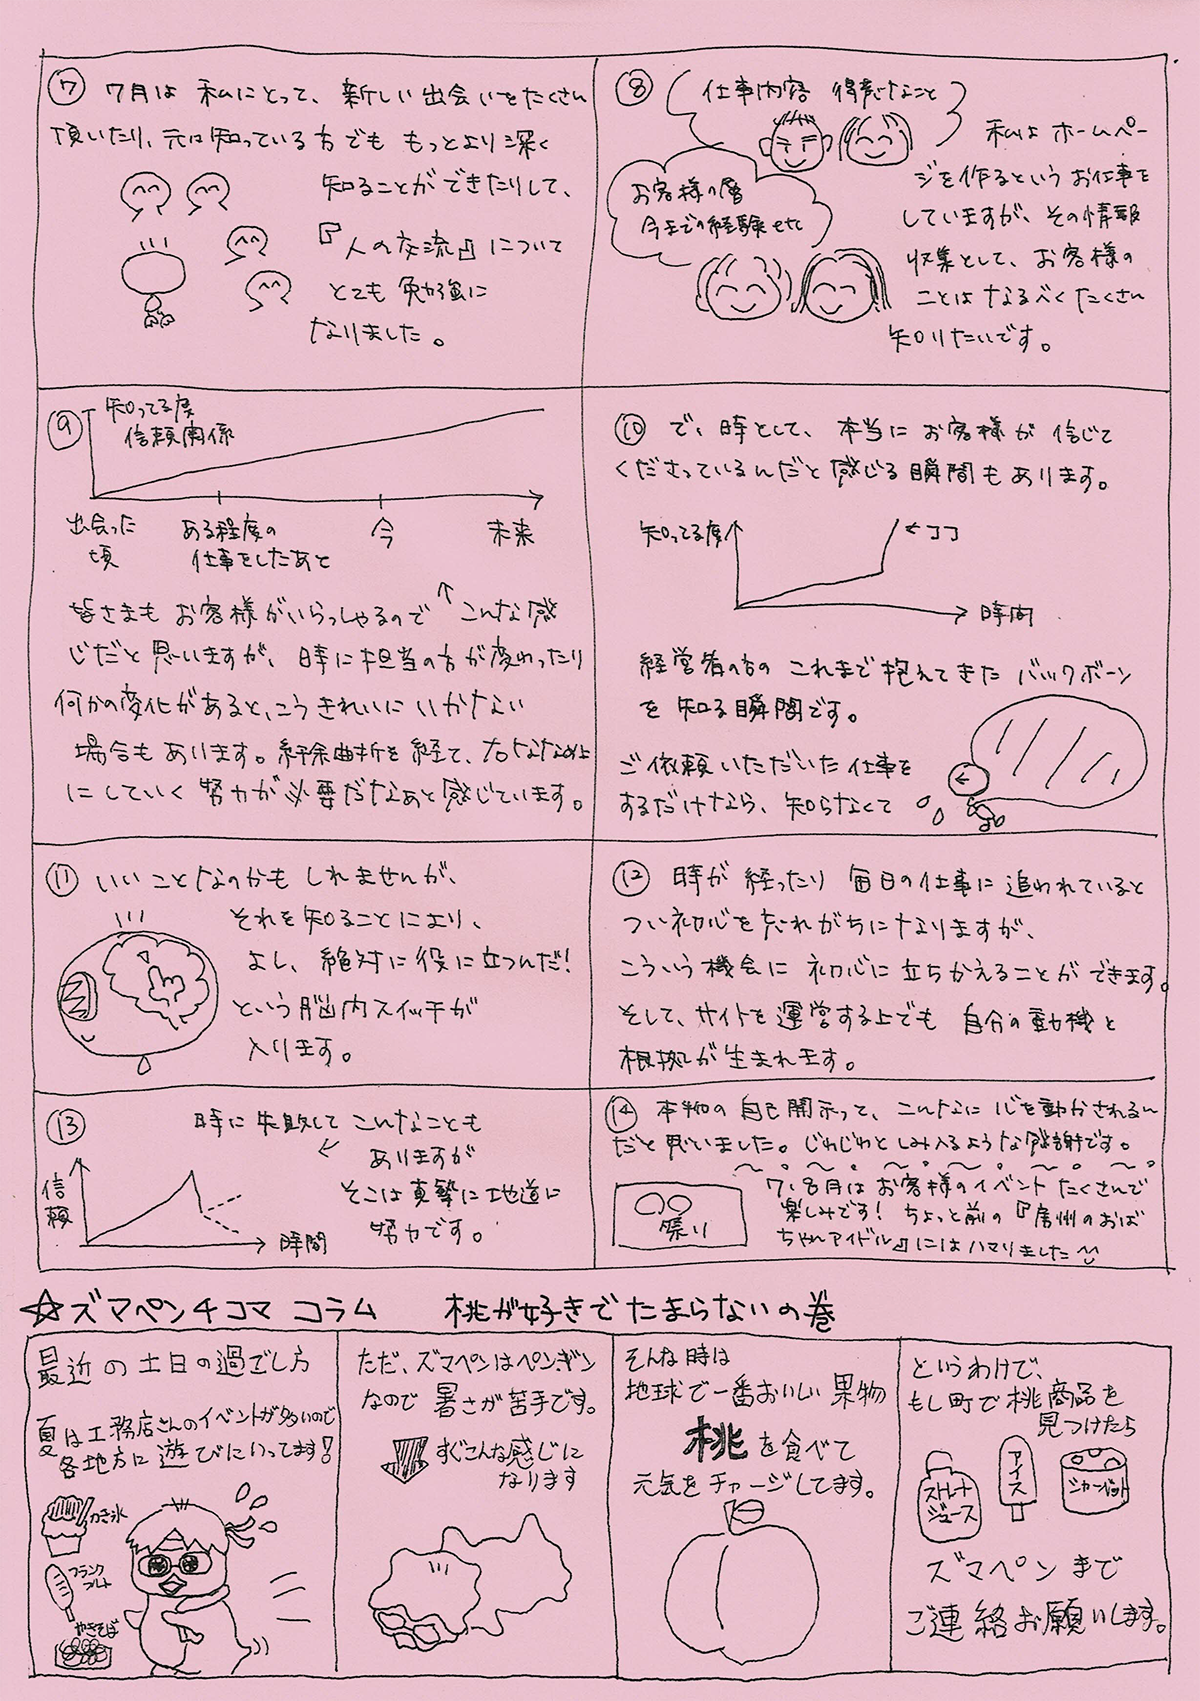 ⑦ 7月は 私にとって、新しい出会いをたくさん
頂いたり、元は知っている方でも もっとより深く
知ることができたりして、
『人の交流』について
とても 勉強に
なりました。
⑧ 仕事内容 得意なこと
お客様の層
今までの経験etc
私は ホームペー
ジを作るという お仕事を
していますが、その情報
収集として、お客様の
ことは なるべく たくさん
知りたいです。
⑨ 知ってる度
信頼関係
出会った
頃
ある程度の
仕事をしたあと
今
未来
皆さまも お客様がいらっしゃるので ↑ こんな感
じだと思いますが、時に担当の方が変わったり
何かの変化があると、こうきれいに いかない
場合も あります。紆余曲折を経て、右ななめ上
にしていく 努力が必要だなあと感じています。
⑩ で、時として、本当に お客様が 信じて
くださっているんだと 感じる 瞬間も あります。
知ってる度
←ココ
時間
経営者の方の これまで 抱えてきた バックボーン
を 知る 瞬間です。
ご依頼いただいた 仕事を
するだけなら、知らなくて
⑪ いいことなのかも しれませんが、
それを知ることにより、
よし、絶対に役に立つんだ!
という脳内スイッチが
入ります。
⑫ 時が 経ったり 毎日の仕事に 追われていると
つい初心を忘れがちになりますが、
こういう機会に 初心に立ちかえることが できます。
そして、サイトを運営する上でも 自分の動機と
根拠が 生まれます。
⑬ 時に 失敗して こんなことも
← ありますが
そこは真摯に地道に
努力です。
信頼
時間
⑭ 本物の 自己開示って、こんなに 心を動かされるん
だと思いました。じわじわとしみ入るような感謝です。
〜。〜。〜。〜。〜。〜。
7、8月は お客様のイベント たくさんで
楽しみです! ちょっと前の『房州のおば
ちゃんアイドル』にはハマりました
○○
祭り
☆ズマペン4コマ コラム 桃が好きでたまらないの巻
最近の土日の過ごし方
夏は工務店さんのイベントが多いので
各地方に遊びにいってます!
かき氷
フランク
フルト
やきそば
ただ、ズマペンはペンギン
なので 暑さが苦手です。
すぐこんな感じに
なります
そんな時は
地球で一番おいしい 果物
桃を食べて
元気をチャージしてます。
というわけで、
もし町で桃商品を
見つけたら
ストレート
ジュース
アイス
シャーベット
ズマペンまで
ご連絡お願いします。